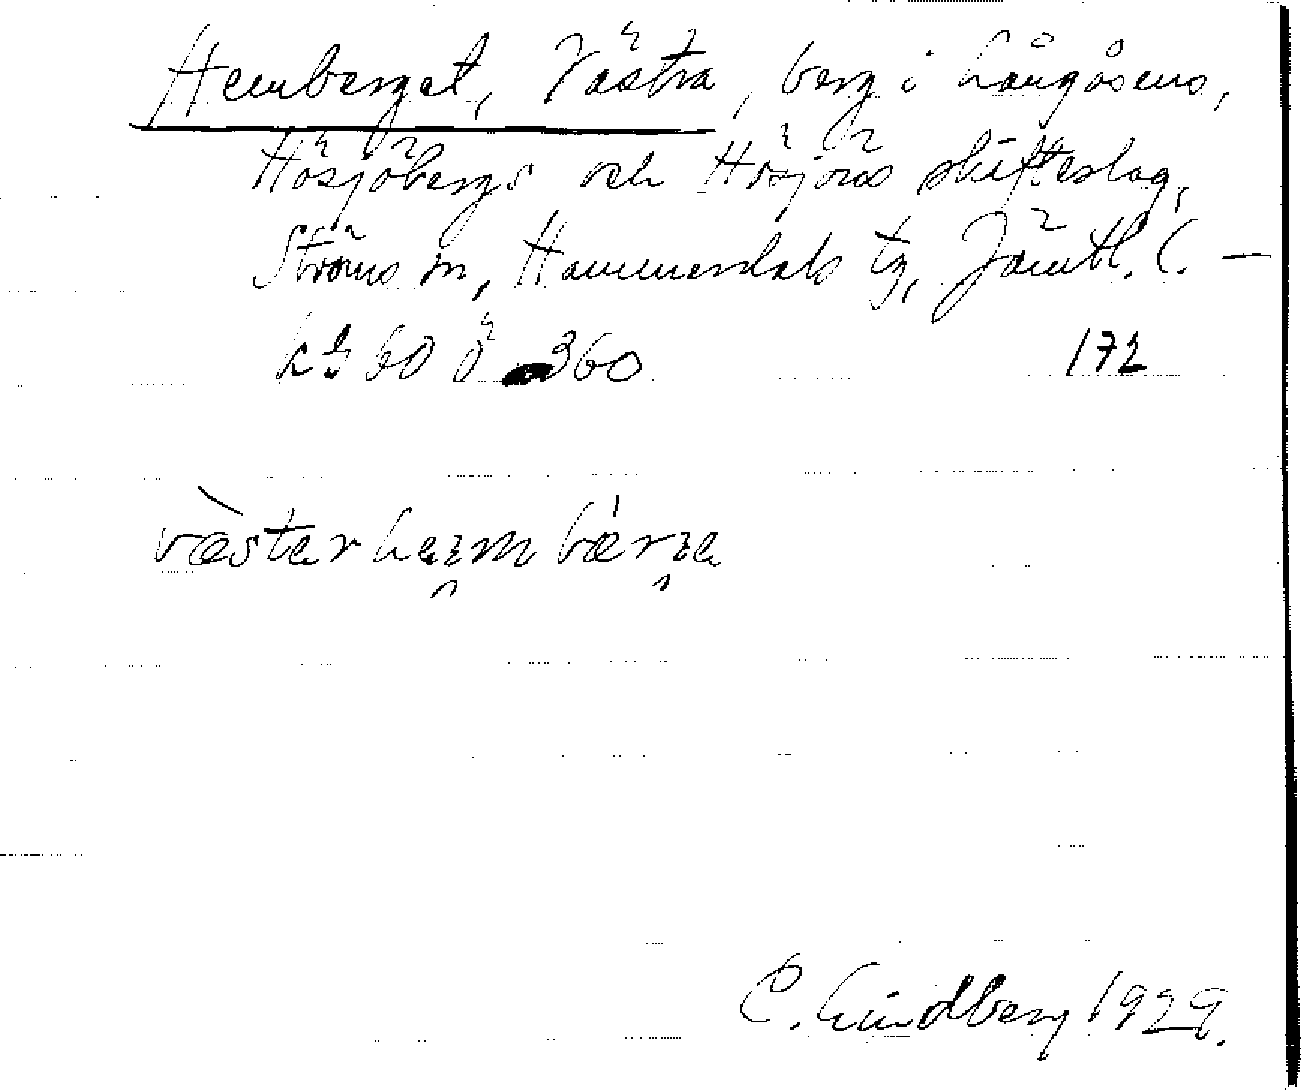 Hemberget, Västra, berg i Långåsens,
Hösjöbergs och Hösjöns skifteslag,
Ströms sn, Hammerdals tg, Jämtl. l. —
60 ö 360 172
vèster heim bérje
C. Lindberg 1929.